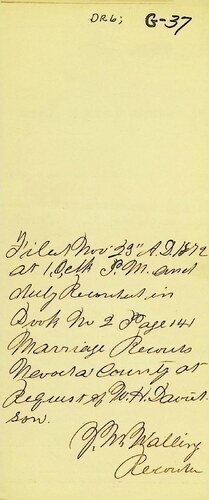 DR6; G-37
Filed Nov 29" A.D. 1872
at 1 Oclk P.M. and
duly Recorded in
Book No 2 Page 141
Marriage Records
Nevada County at
Request of W. H. David
son.
Recorder